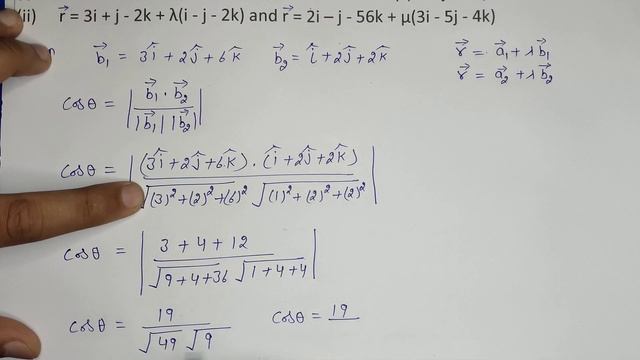 (ii) r⃗ = 3i + j - 2k + λ(i - j - 2k) and r⃗ = 2i – j - 56k + μ(3i - 5j - 4k)
b⃗₁ = 3î + 2ĵ + 6k̂ b⃗₂ = î + 2ĵ + 2k̂ r⃗ = a⃗₁ + λ b⃗₁
r⃗ = a⃗₂ + λ b⃗₂
cosθ = | b⃗₁ · b⃗₂ / |b⃗₁| |b⃗₂| |
cosθ = | (3î + 2ĵ + 6k̂) · (î + 2ĵ + 2k̂) / √(3)² + (2)² + (6)² √(1)² + (2)² + (2)² |
cosθ = | 3 + 4 + 12 / √9+4+36 √1+4+4 |
cosθ = 19 / √49 √9 cosθ = 19